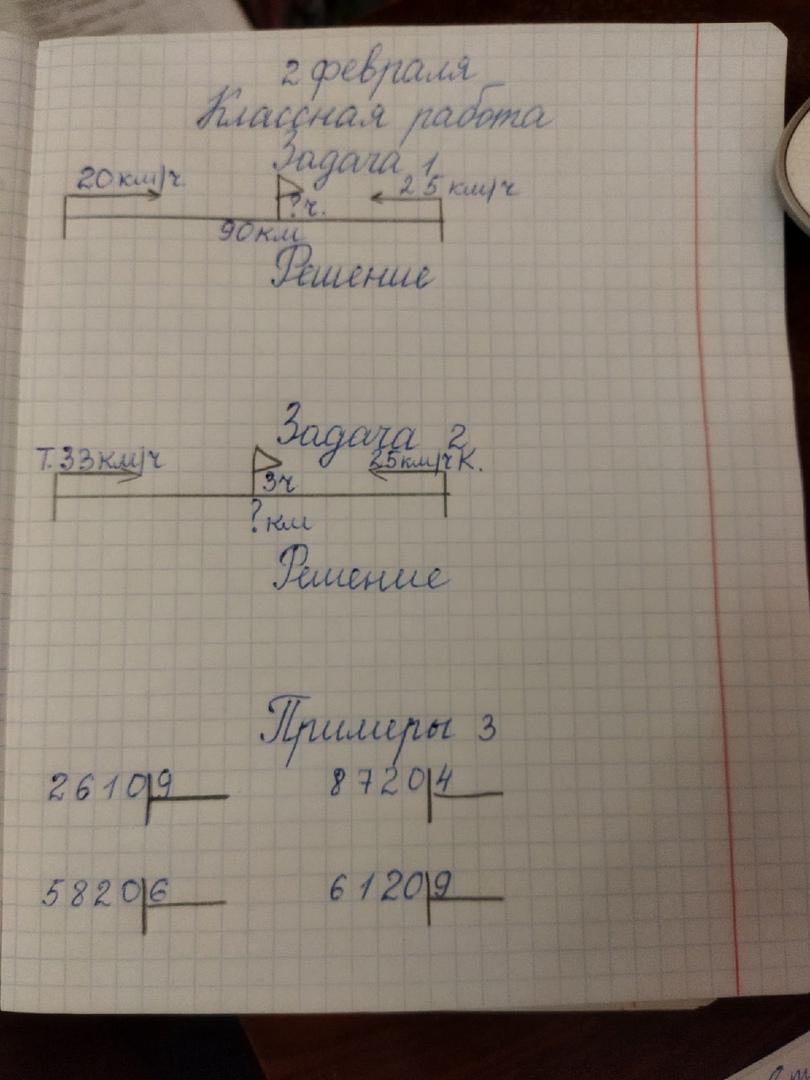 2 февраля
Классная работа
Задача 1
20 км/ч 25 км/ч
? ч.
90 км
Решение
Задача 2
Т. 33 км/ч 25 км/ч К.
3 ч
? км
Решение
Примеры 3
2610|9 8720|4
5820|6 6120|9